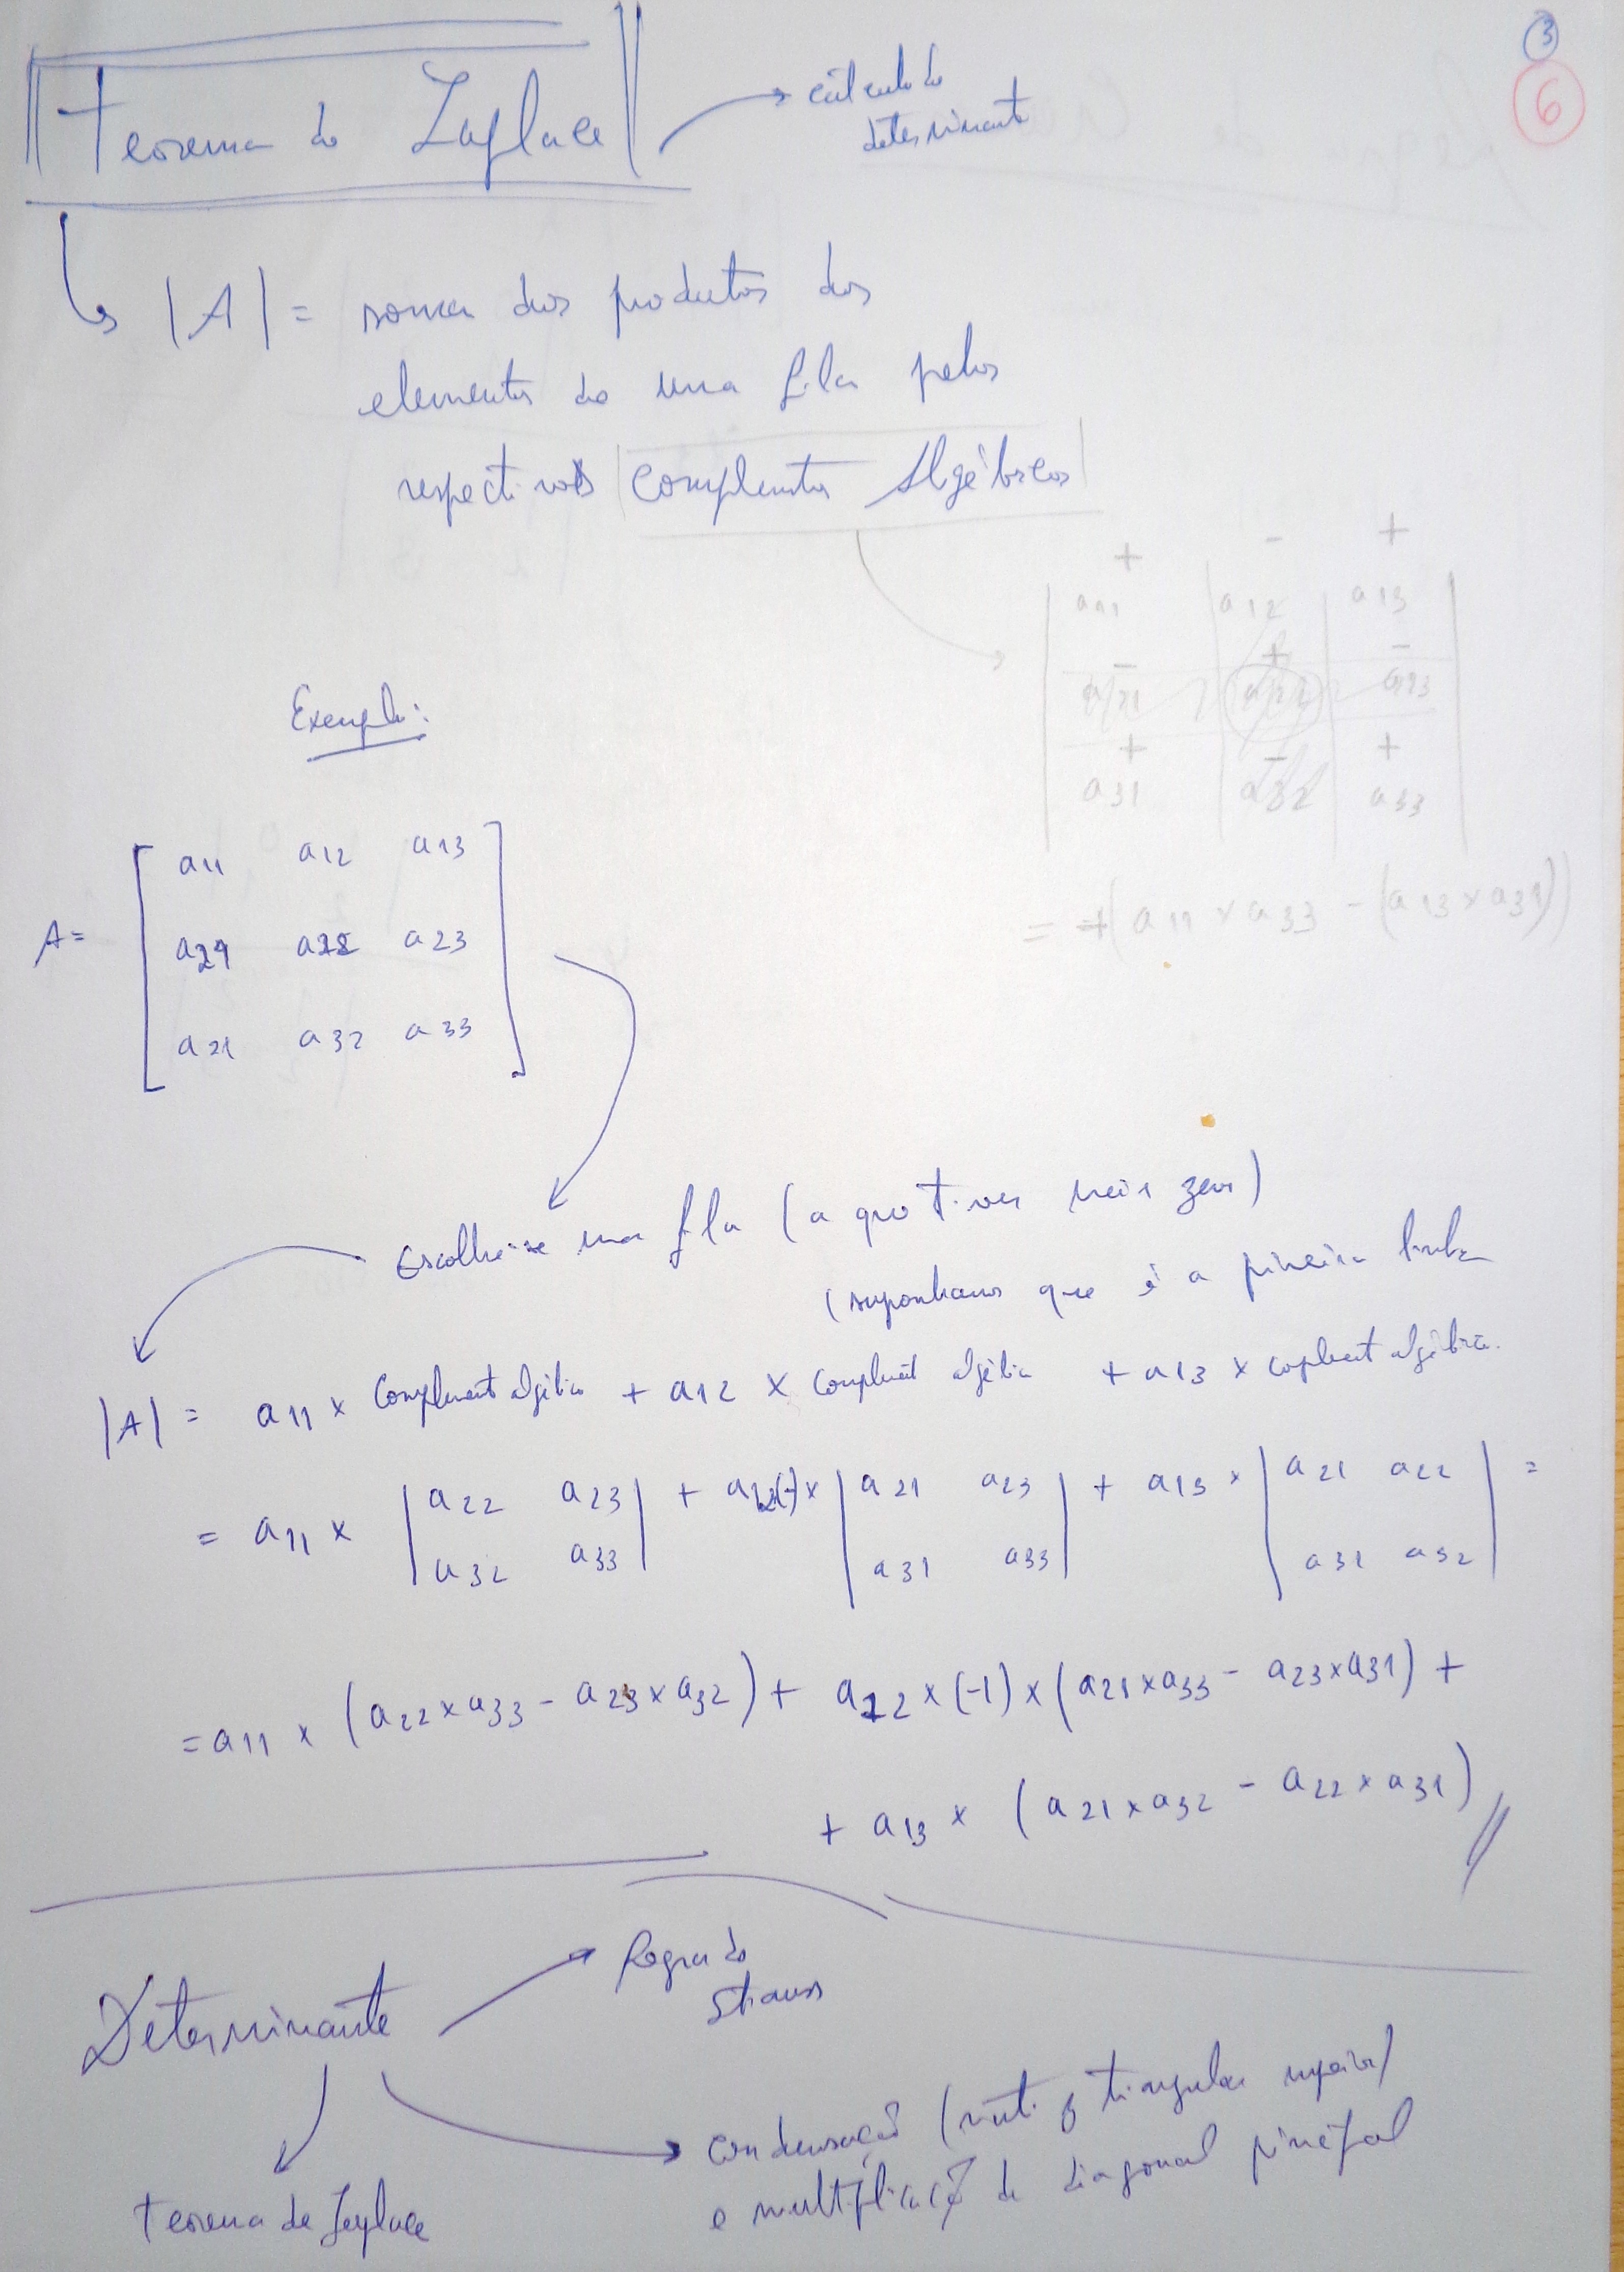 3
6
Teorema de Laplace
cálculo do
determinante
|A| = soma dos produtos dos
elementos de uma fila pelos
respectivos complementos Algébricos
+ - +
a11 a12 a13
- + -
a21 a22 a23
+ - +
a31 a32 a33
= +(a11 x a33 - (a13 x a31))
Exemplo:
A =
a11 a12 a13
a21 a22 a23
a21 a32 a33
Escolhe-se uma fila (a que tiver mais zeros)
(suponhamos que é a primeira linha
|A| = a11 x complement algébrico + a12 x complement algébrico + a13 x complement algébrico.
= a11 x | a22 a23 | + a12(-) x | a21 a23 | + a13 x | a21 a22 | =
| a32 a33 | | a31 a33 | | a31 a32 |
= a11 x (a22 x a33 - a23 x a32) + a12 x (-1) x (a21 x a33 - a23 x a31) +
+ a13 x (a21 x a32 - a22 x a31) //
Determinante
Regra de
Teorema de Laplace
condensação (matriz triangular superior)
e multiplicação da diagonal principal